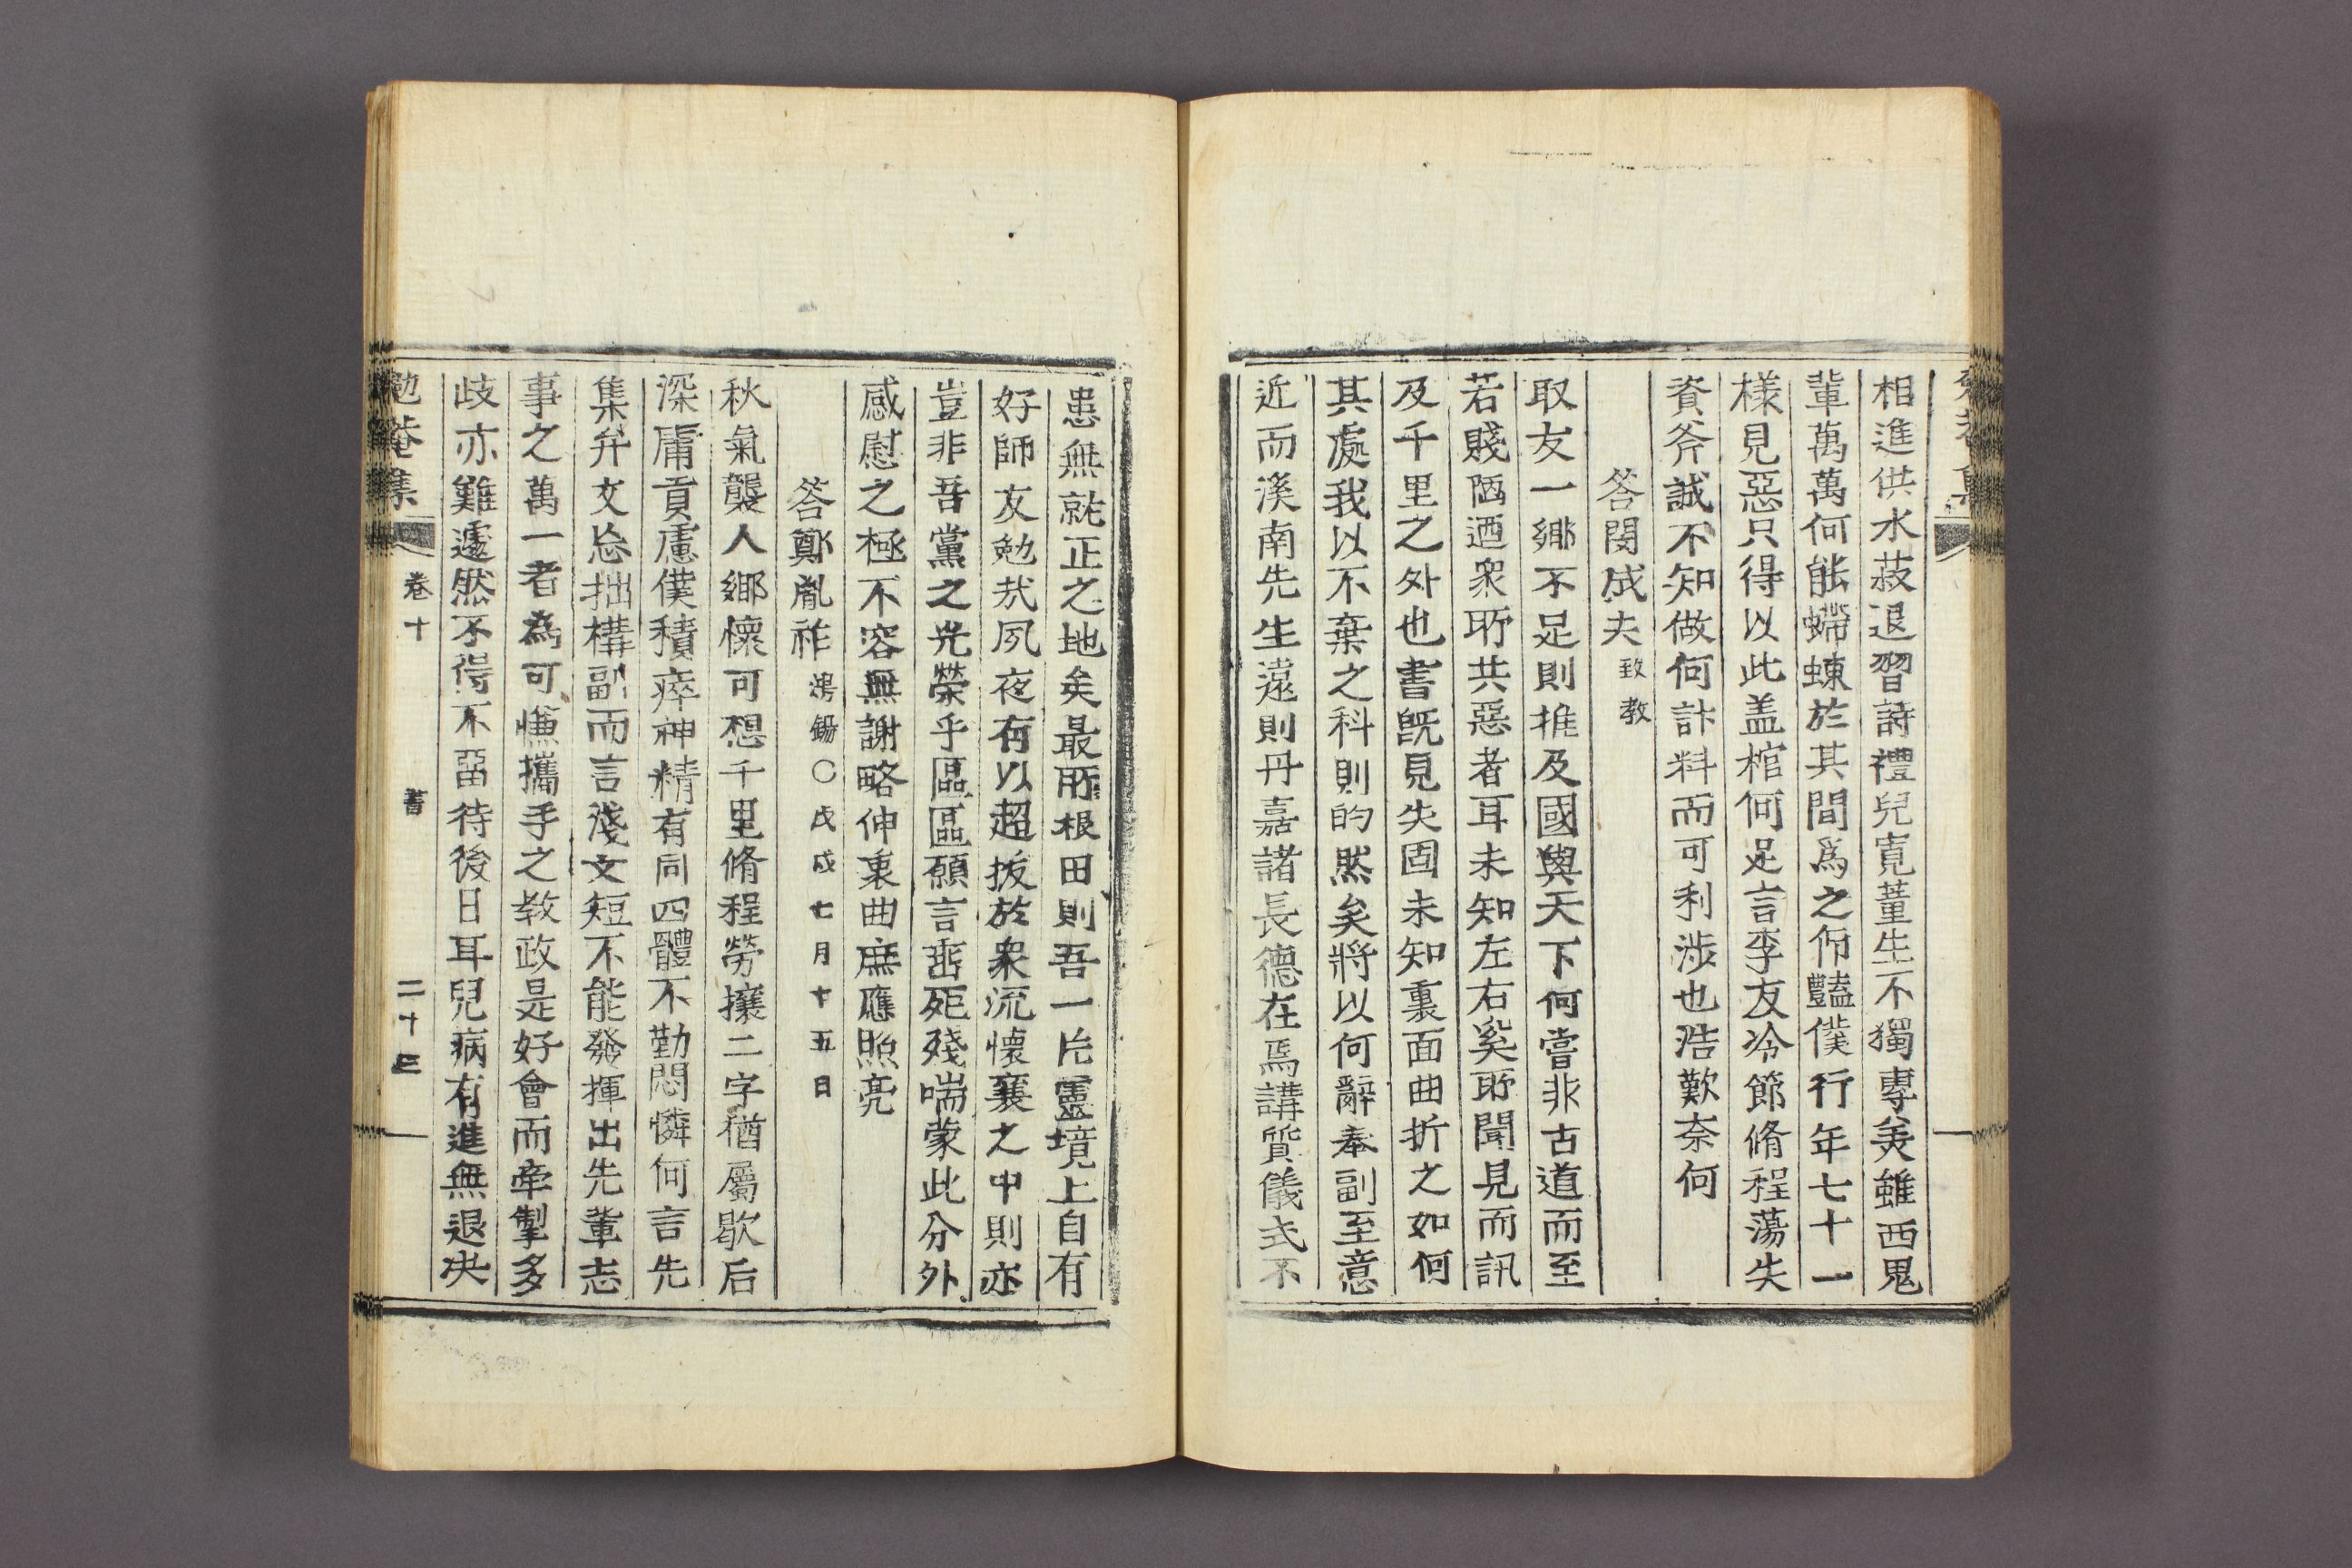 相進供水菽退習詩禮兒寬董生不獨專美雖西鬼
輩萬萬何能螮蝀於其間爲之仰豔僕行年七十一
樣見惡只得以此盖棺何足言李友冷節脩程蕩失
資斧誠不知做何計料而可利涉也浩歎奈何
答閔成夫 致敎
取友一鄉不足則推及國與天下何嘗非古道而至
若賤陋迺衆所共惡者耳未知左右奚所聞見而訊
及千里之外也書旣見失固未知裏面曲折之如何
其處我以不棄之科則的然矣將以何辭奉副至意
近而溪南先生遠則丹嘉諸長德在焉講質儀式不
患無就正之地矣最所根田則吾一片靈境上自有
好師友勉㢤夙夜有以超拔於衆流懷襄之中則亦
豈非吾黨之光榮乎區區願言垂死殘喘蒙此分外
感慰之極不容無謝略伸衷曲庶應照亮
答鄭胤祚 鴻錫○戊戌七月十五日
秋氣襲人鄉懷可想千里脩程勞攘二字猶屬歇后
深庸貢慮僕積瘁神精有同四體不勤悶憐何言先
集弁文忘拙構副而言淺文短不能發揮出先輩志
事之萬一者為可慊攜手之敎政是好會而牽掣多
歧亦難遽然不得不留待後日耳兒病有進無退决
勉菴集 卷十 書 二十三